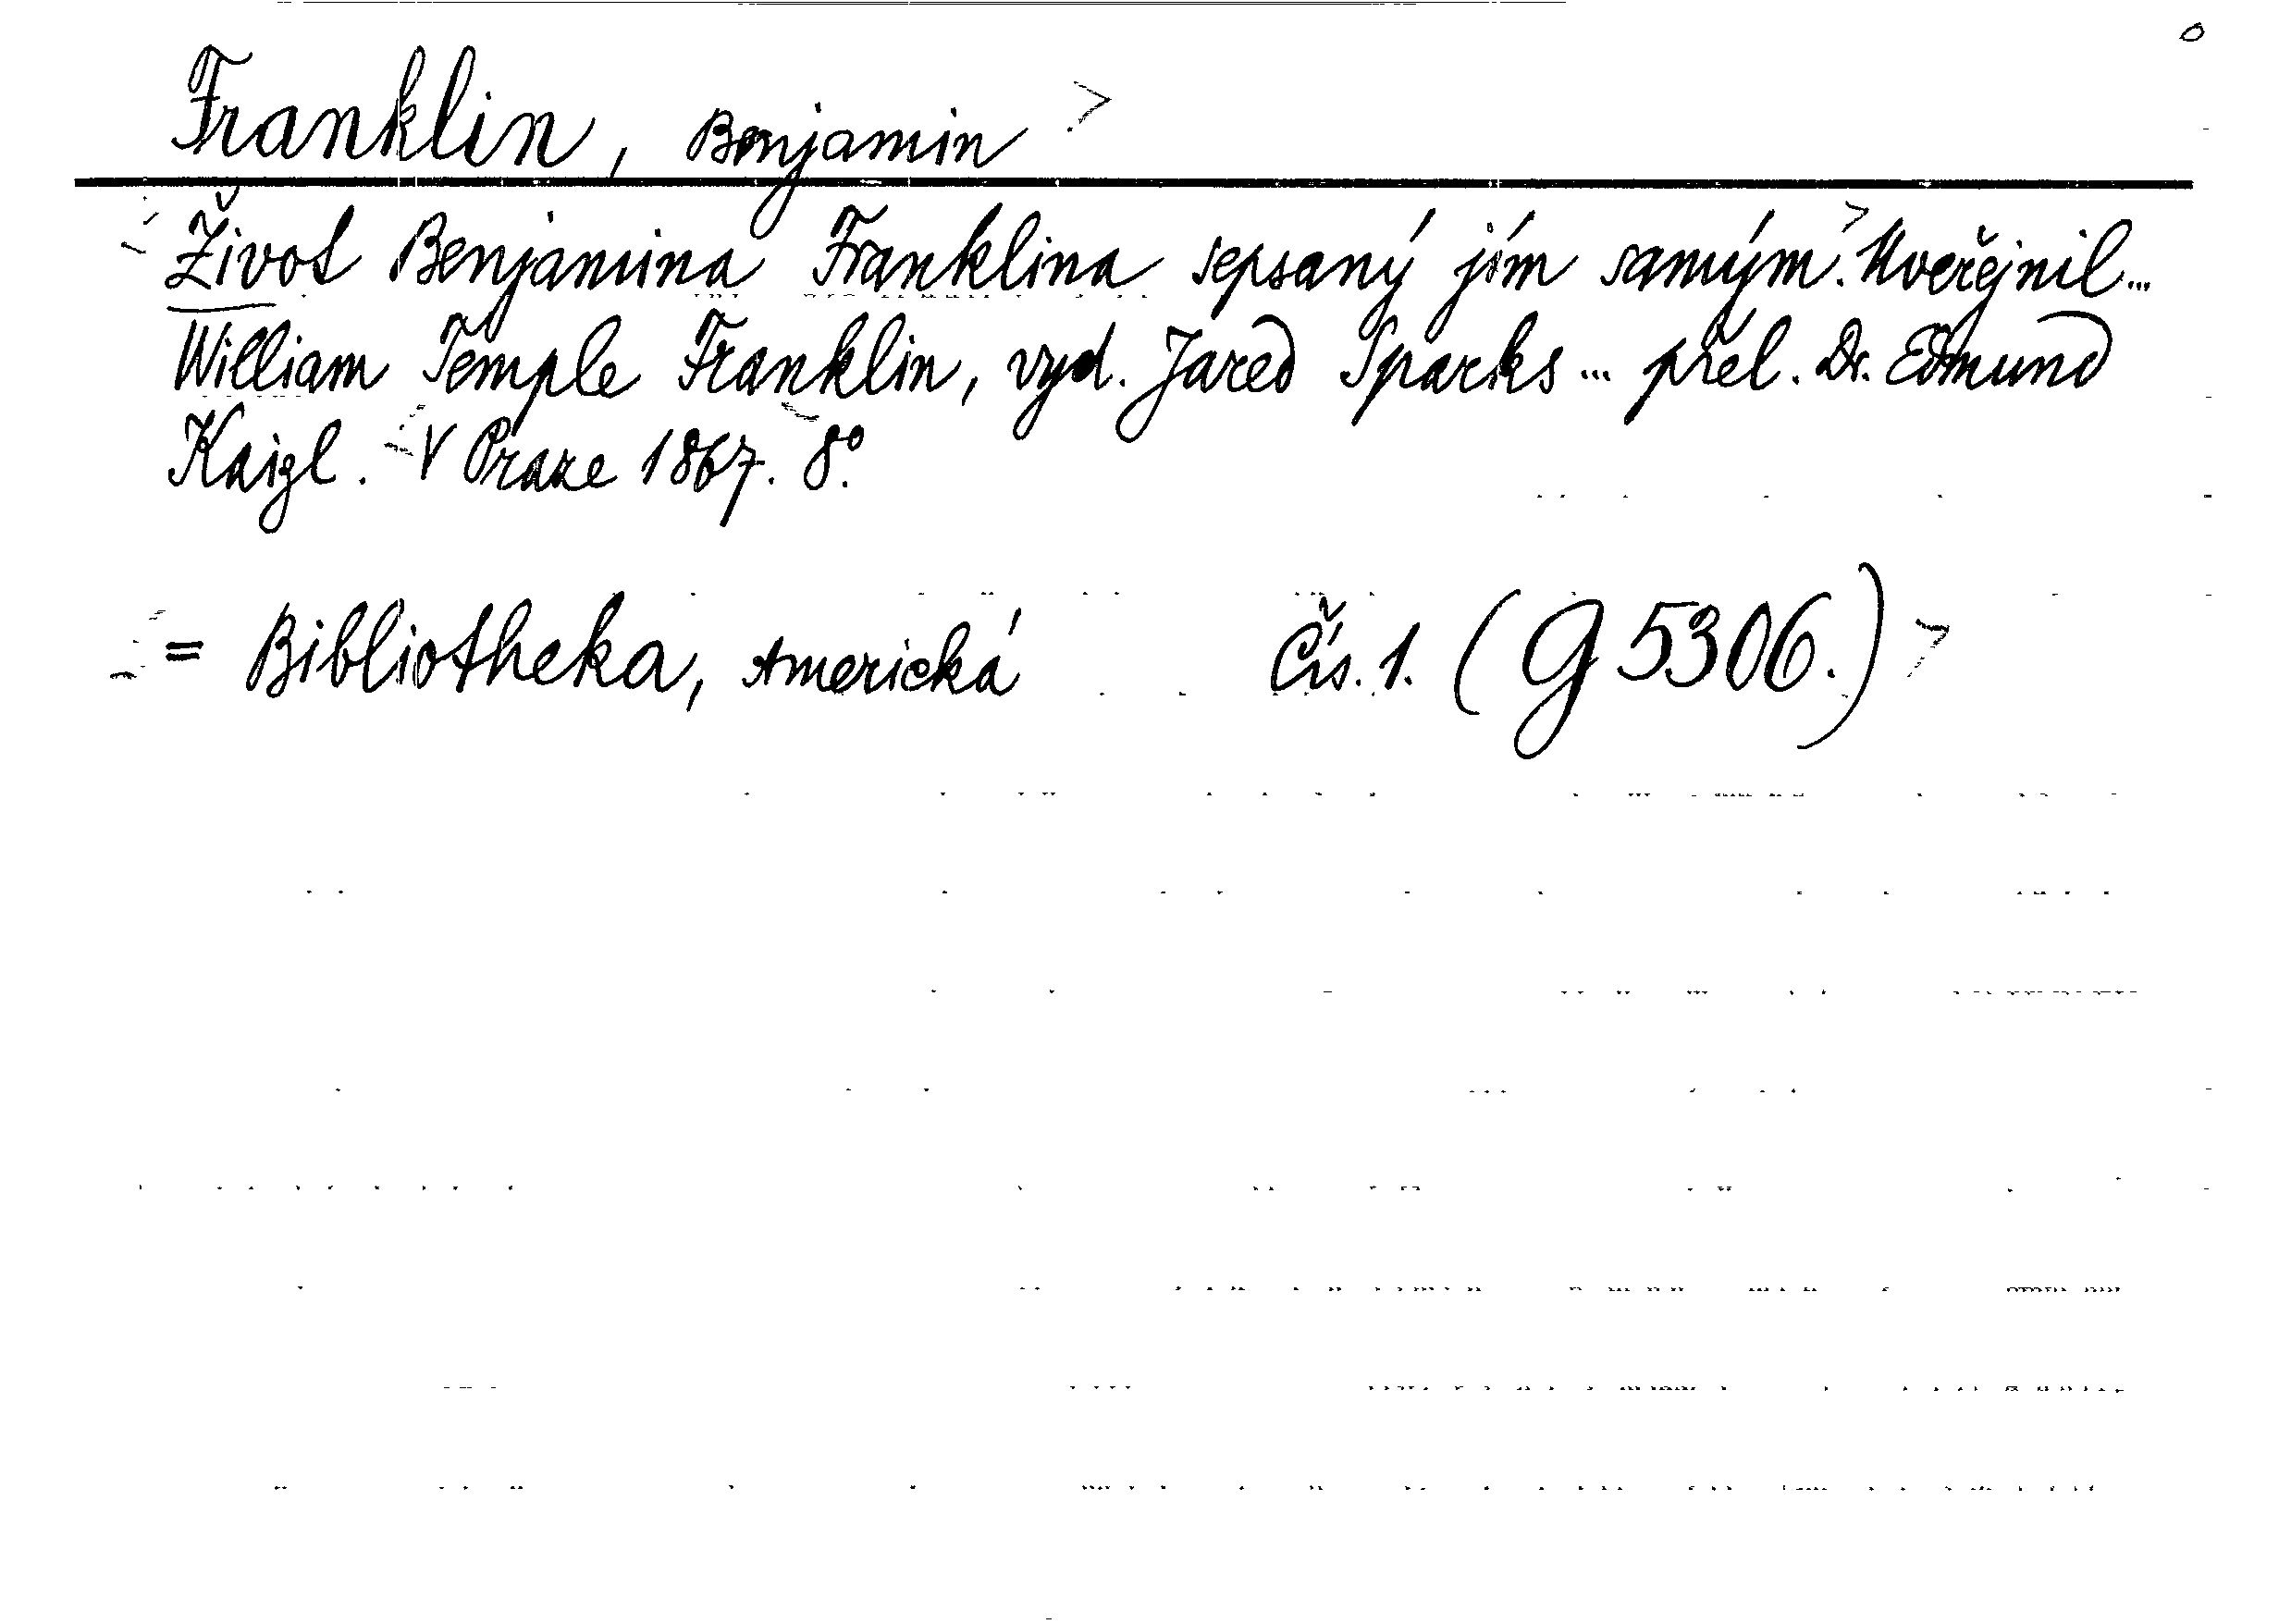 Franklin, Benjamin
Život Benjamina Franklina sepsaný jím samým. Uveřejnil...
William Temple Franklin, vyd. Jared Sparks ... přel. Dr. Edmund
Kaizl. V Praze 1867. 8°.
= Bibliotheka, Americká Čís. 1. (G 5306.)